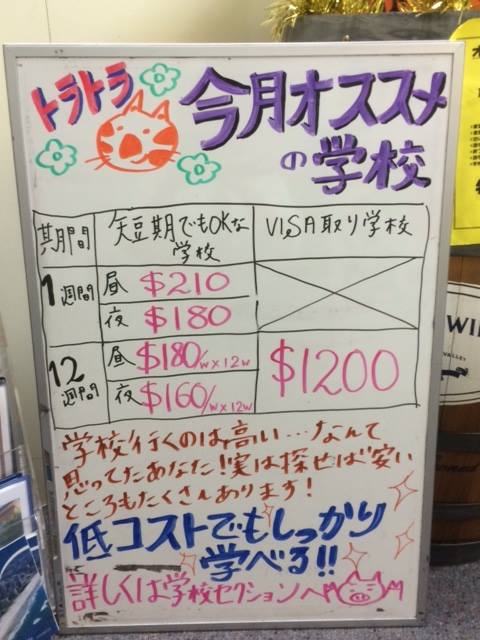 トラトラ
今月オススメ
の学校
期間
短期でもOKな
学校
VISA取り学校
1週間
昼 $210
夜 $180
12週間
昼 $180/w×12w
夜 $160/w×12w
$1200
学校行くのは高い…なんて
思ってたあなた!実は探せば安い
ところもたくさんあります!
低コストでもしっかり
学べる!!
詳しくは学校セクションへ
WI
VALLEY